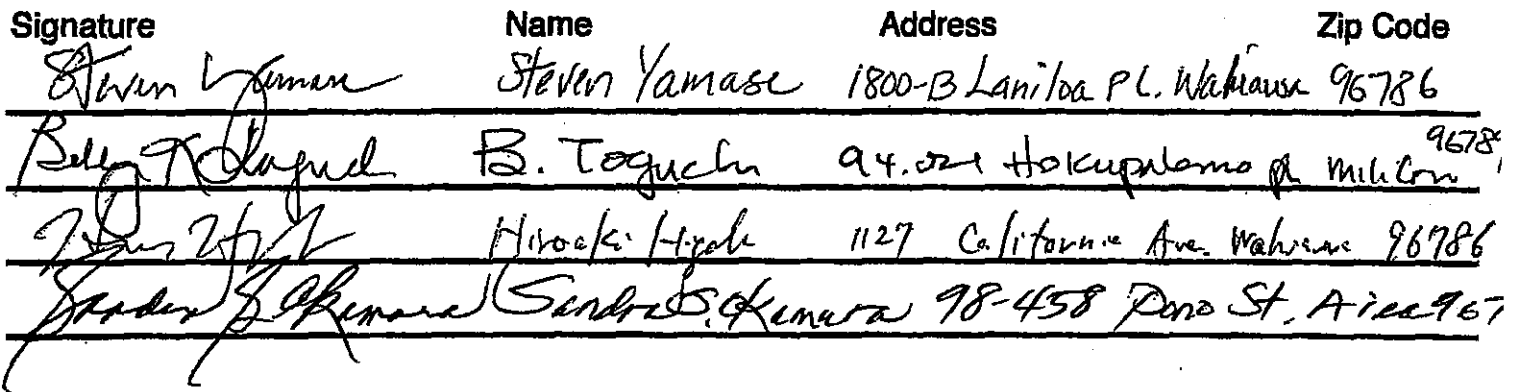 Signature Name Address Zip Code
Steven Yamase Steven Yamase 1800-B Laniloa Pl. Wahiawa 96786
B. Toguchi Pl 9678
Hiroaki 1127 California Ave. Wahiawa 96786
Sandra S. Okamura Sandra S. Okamura 98-458 Pono St. Aiea 967